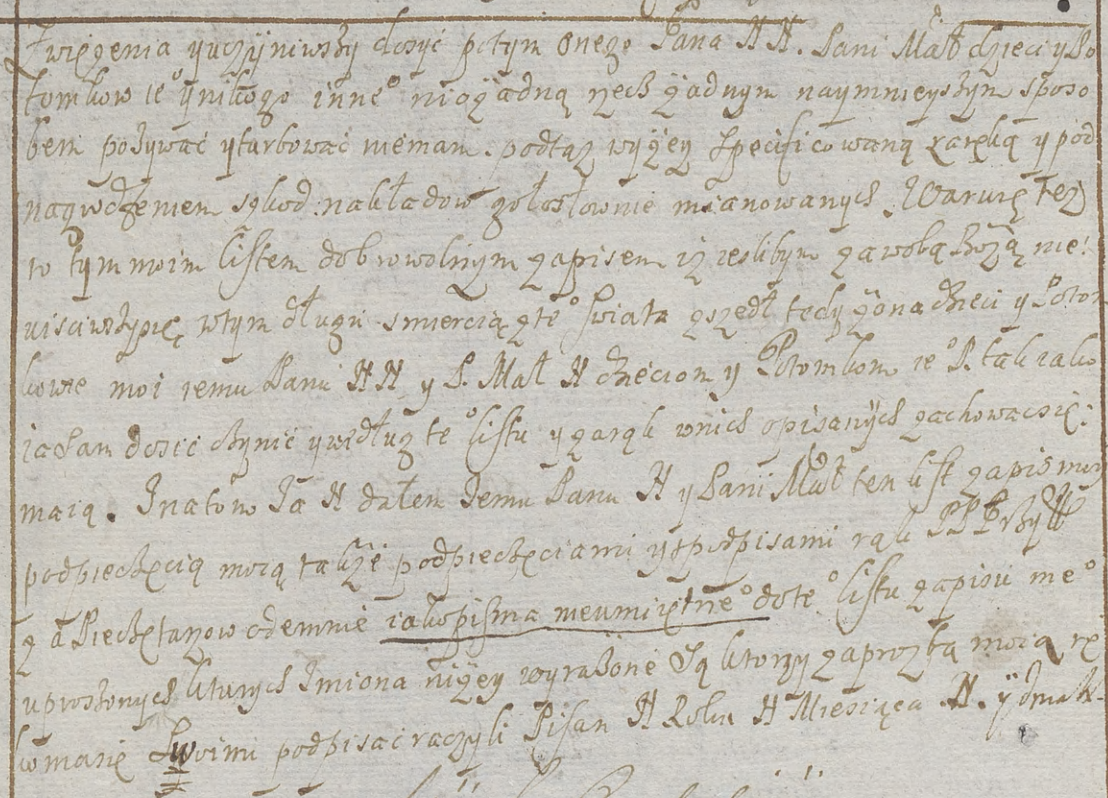 Zwięzenia y uczyniwszy dosyć potym onego Pana NN. Pani Małż dzieci y Po
tomkow ie° y nikogo inne° nio żadną rzecz żadnym naymnieyszym sposo
bem pozywać y turbować niemam. podtąz wyżey specificowaną zaręką y pod
nagrodzeniem szkod nakładow gołosłownie mianowanych. Waruię też
w tym moim listem dobrowolnym zapisem iż iesliby m za wolą Bożą nie
uisciwszysię wtym długu smiercią z te° swiata zszedł tedy żona dzieci y Potom
kowie moi iemu Panu NN y P. Małż N dzieciom y Potomkom ie° P. tak iako
ia sam dosić czynić y według te° listu y zaręk wnich opisanych zachowacsię
maią. Inatom Ja N dałem Jemu Panu N y Pani Małż ten list zapis moy
podpieczęcią moią takze podpieczęciami y spodpisami rąk PPP
Pieczętarzow odemnie iako pisma nieumieiętne° do te° listu zapisu me°
uproszonych ktorych Imiona niżey wyrażone Są ktorzy zaprozbą moią rę
koma Swoimi podpisać raczyli Pisan N Roku N Miesiąca N. y dnia N.